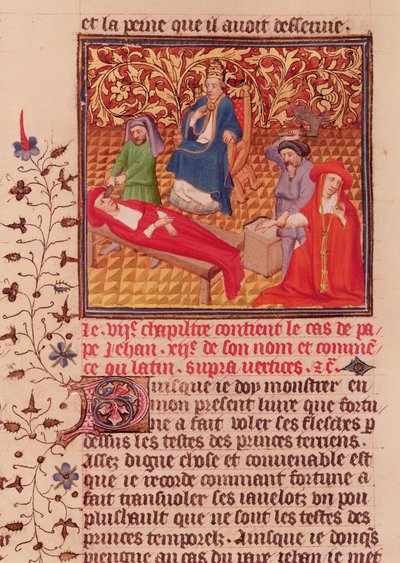 et la peine que il avoit desservie.
Le vii^e chapiltre contient le cas de pa
pe Jehan .xii^e de son nom et commen
ce ou latin. Supra vertices. &c.
Puisque ie doy monstrer en
mon present livre que fortu
ne a fait voler ses flesches p
dessus les testes des princes terriens.
Assez digne chose et convenable est
que ie recorde commant fortune a
fait transvoler ses iavelotz un pou
plushault que ne sont les testes des
princes temporelz. Puisque ie donqs
viengne au cas du pape Jehan ie met